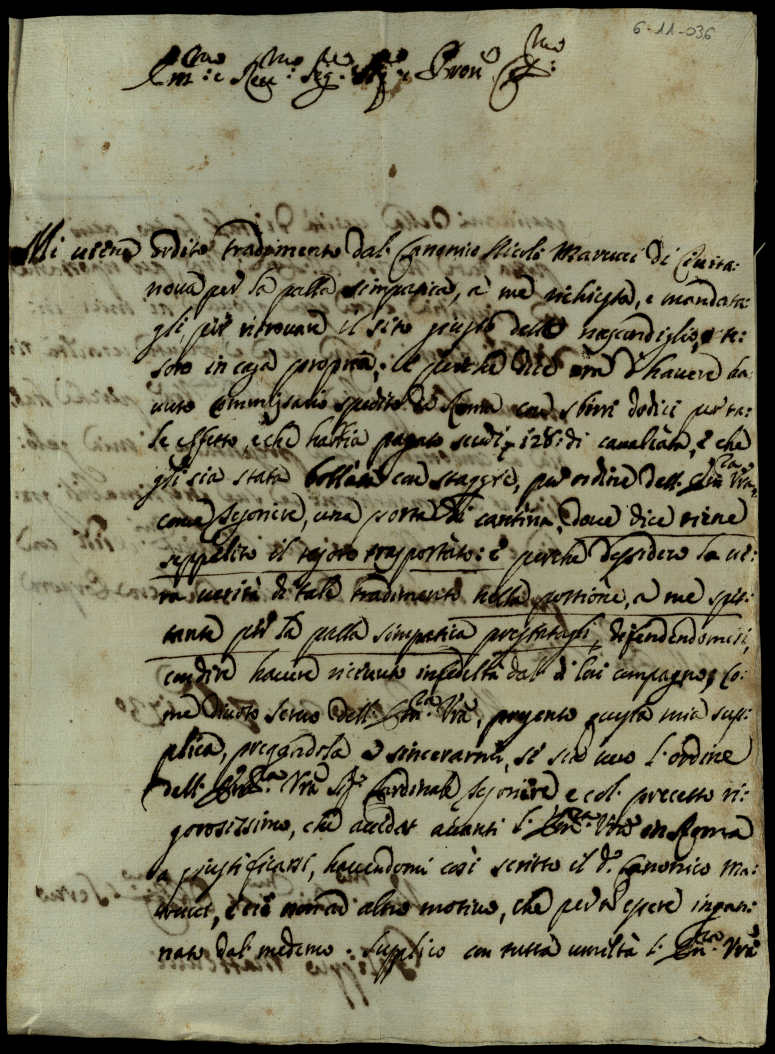 6-11-036
Em:mo e Rev:mo Sig:re Sig:re e Pron:e Col:mo
Mi viene ordito tradimento dal Canonico Nicolò Marucci di Civita:
nova per la palla simpatica, a me richiesta, e mandata:
gli, per ritrovare il sito giusto delle nascondiglio, te:
soro in casa propria; e perche dice ora d'havere ha:
vuto Commissario spedito da Roma con sbirri dodici per ta:
le effetto, e che habbia pagato scudi 128: di cavalcata, e che
gli sia stata bollata con staggre, per ordine dell'Em:za Vra,
come Sejoniere, una porta di cantina, dove dice viene
seppelito il tesoro trasportato: e perche desidero la ve:
ra verità di tale tradimento nella portione, a me spet:
tante per la palla simpatica prestatagli, difendendomisi,
con dire havere ricevuto infedeltà dal di loro compagno, Co:
me divoto servo dell'Em:za Vra, presento questa mia sup:
plica, preggadola a sincerarmi, se sia vero l'ordine
dell'Em:za Vra Sig:r Cardinale Sejoniere e col precetto ri:
gorosissimo, che accedat avanti l'Em:za Vra in Roma
a giustificarsi, havendomi così scritto il d:o Canonico Ma:
rucci, e ciò non ad altro motivo, che per essere ingan:
nato dal medemo. Supplico con tutta umiltà l'Em:za Vra